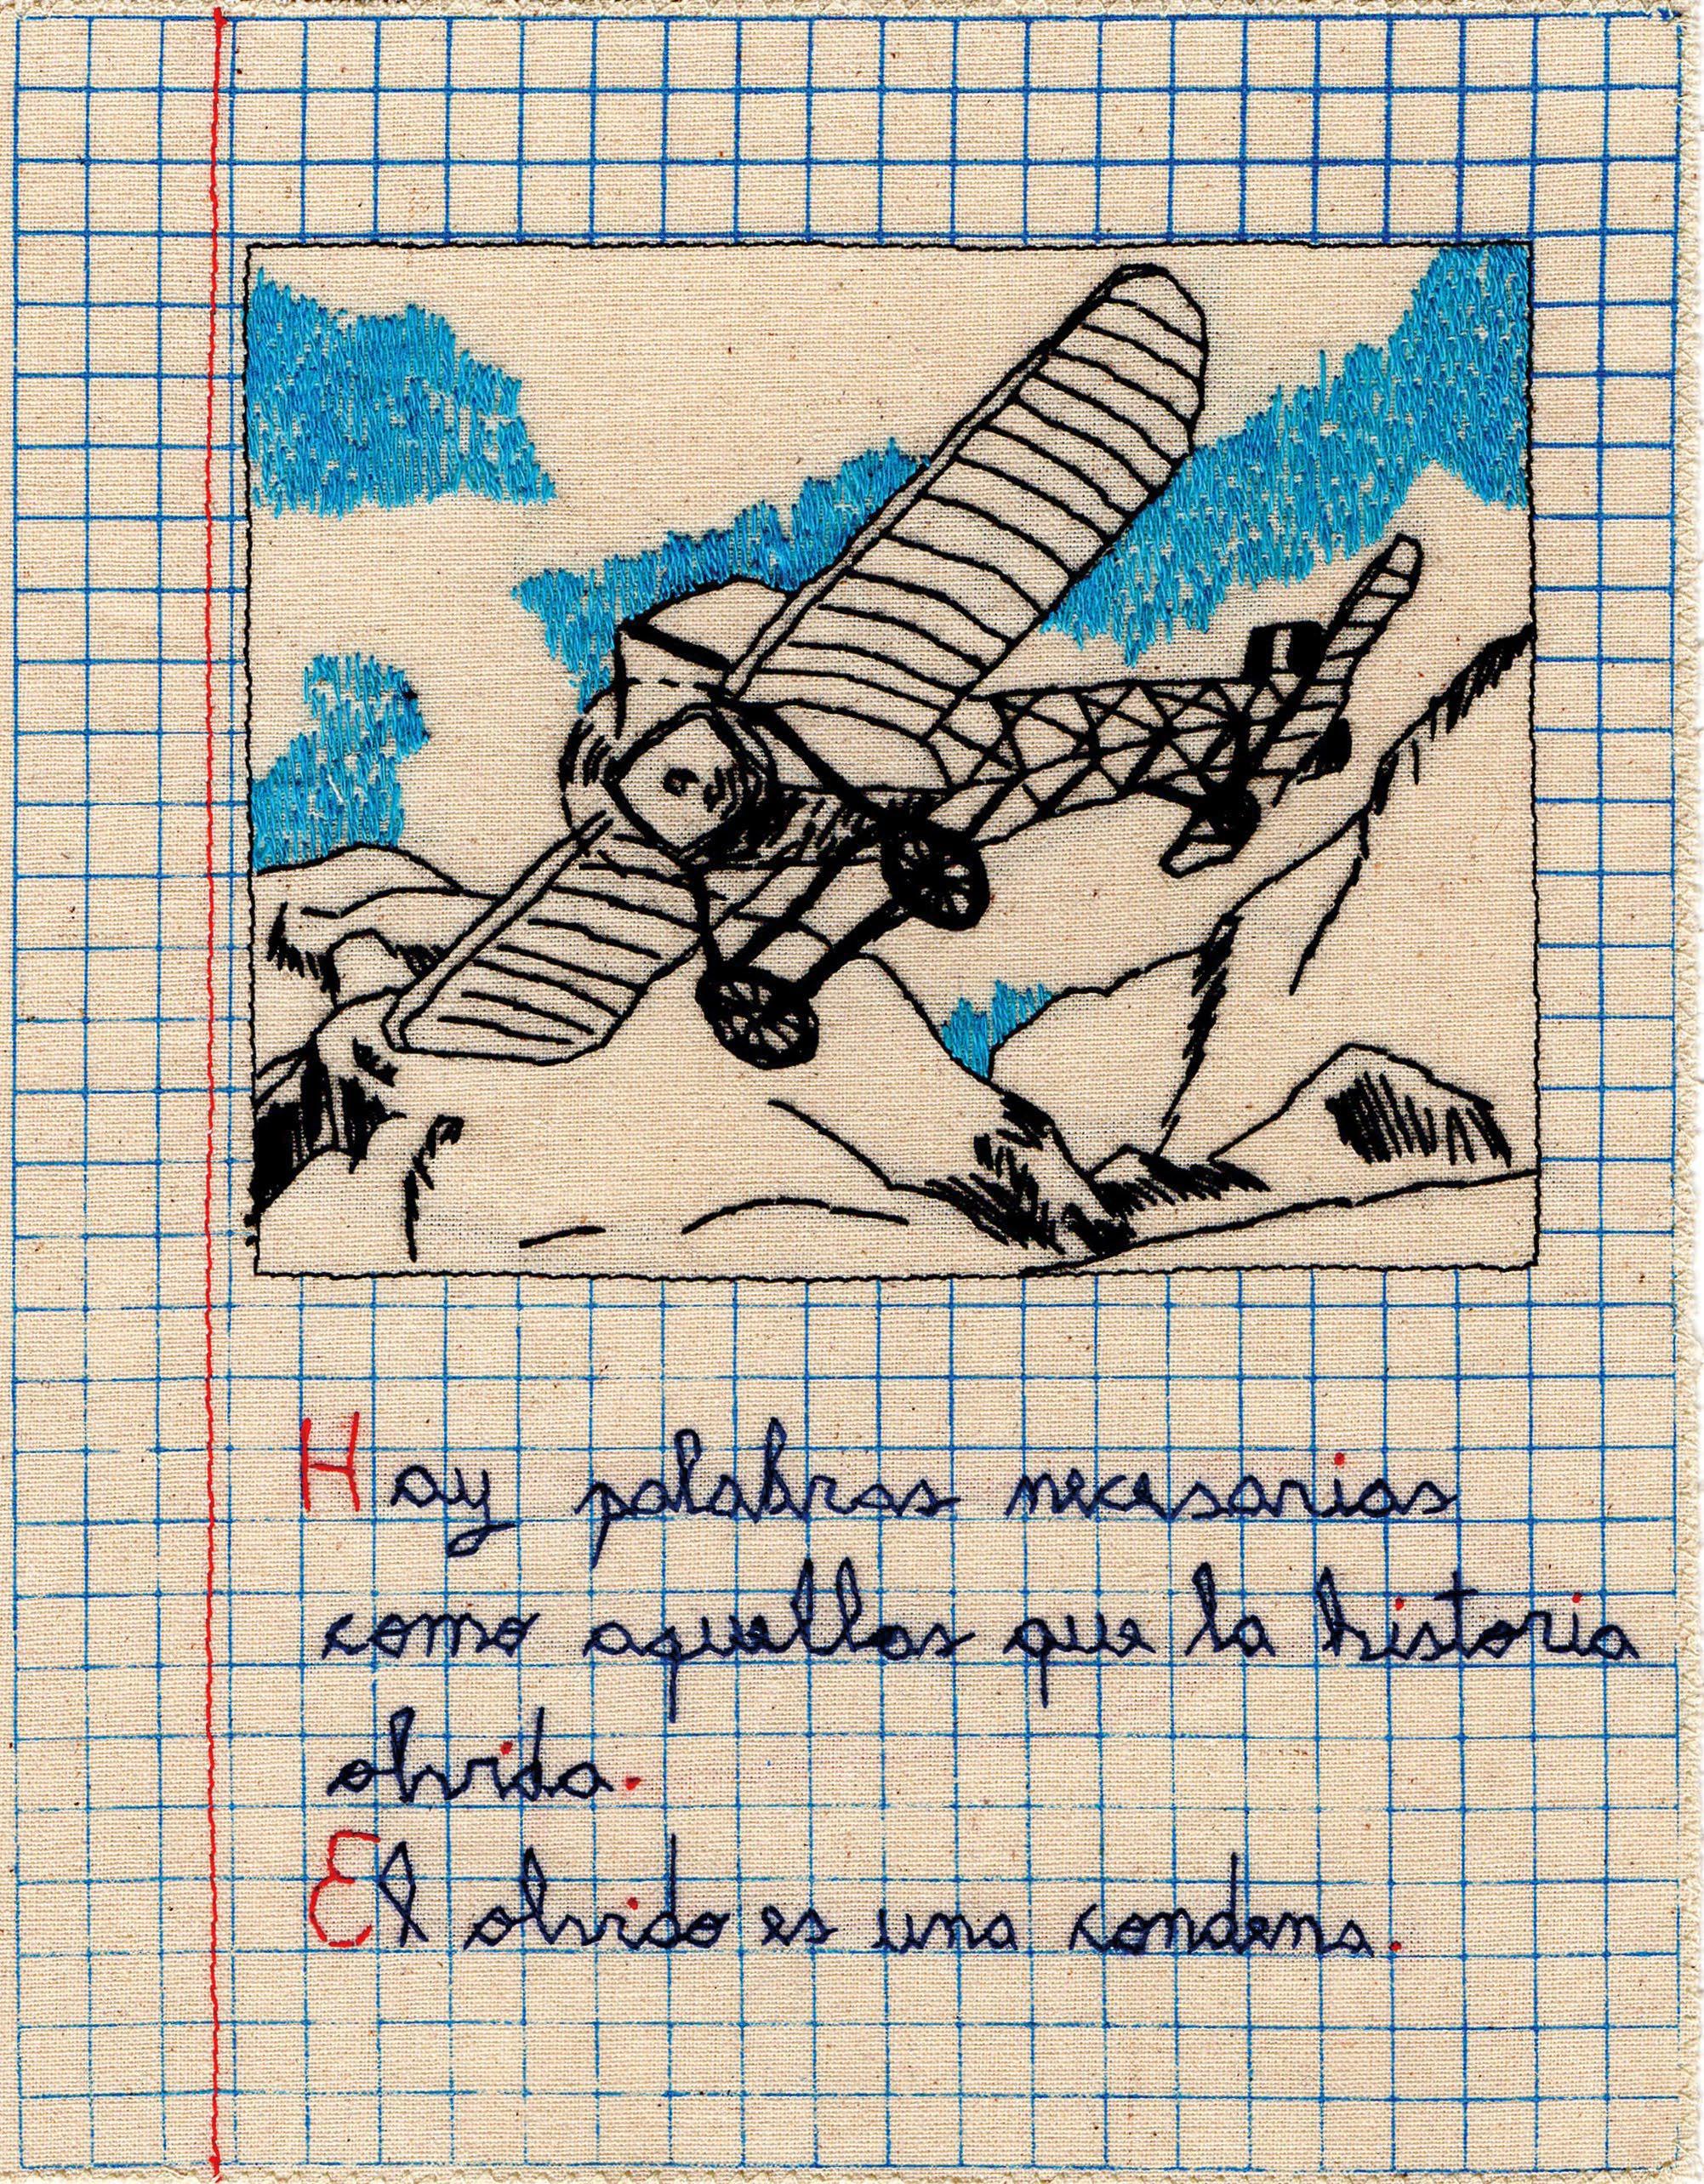 Hay palabras necesarias
como aquellas que la historia
olvida.
El olvido es una condena.